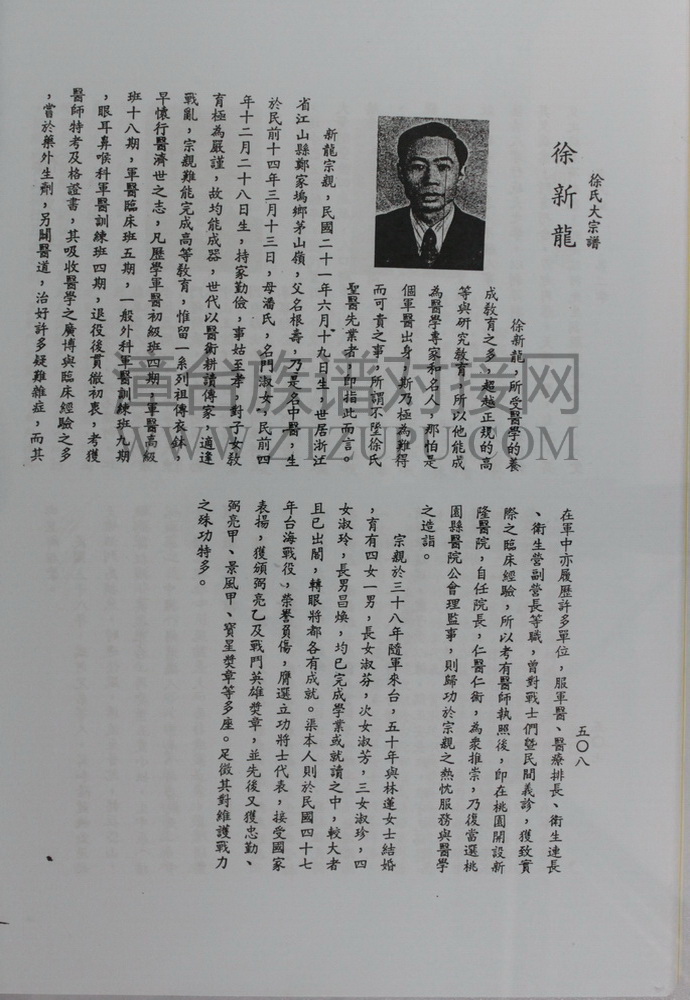 徐氏大宗譜
徐新龍
徐新龍，所受醫學的養
成教育之多，超越正規的高
等與研究教育，所以他能成
為醫學專家和名人，那怕是
個軍醫出身，斯乃極為難得
而可貴之事，所謂不墜徐氏
聖醫先業者，即指此而言。
新龍宗親，民國二十一年六月十九日生，世居浙江
省江山縣鄭家塢鄉茅山嶺，父名根壽，乃是名中醫，生
於民前十四年三月十三日，母潘氏，名門淑女，民前四
年十二月二十八日生，持家勤儉，事姑至孝，對子女教
育極為嚴謹，故均能成器，世代以醫術耕讀傳家，適逢
戰亂，宗親難能完成高等教育，惟留一系列祖傳衣鉢，
早懷行醫濟世之志，凡歷學軍醫初級班四期，軍醫高級
班十八期，軍醫臨床班五期，一般外科軍醫訓練班九期
，眼耳鼻喉科軍醫訓練班四期，退役後貫徹初衷，考獲
醫師特考及格證書，其吸收醫學之廣博與臨床經驗之多
，當於藥外生劑，另闢醫道，治好許多疑難雜症，而其
在軍中亦履歷許多單位，服軍醫、醫療排長、衛生連長
、衛生營副營長等職，曾對戰士們暨民間義診，獲致實
際之臨床經驗，所以考有醫師執照後，即在桃園開設新
隆醫院，自任院長，仁醫仁術，為眾推崇，乃復當選桃
園縣醫院公會理監事，則歸功於宗親之熱忱服務與醫學
之造詣。
宗親於三十八年隨軍來台，五十年與林蓮女士結婚
，育有四女一男，長女淑芬，次女淑芳，三女淑珍，四
女淑玲，長男昌煥，均已完成學業或就讀之中，較大者
且已出閣，轉眼將都各有成就。渠本人則於民國四十七
年台海戰役，榮譽負傷，膺選立功將士代表，接受國家
表揚，獲頒弼亮乙及戰鬥英雄獎章，並先後又獲忠勤、
弼亮甲、景風甲、寶星獎章等多座。足徵其對維護戰力
之殊功特多。
五〇八
漳台族谱对接网
WWW.ZTZUPU.COM